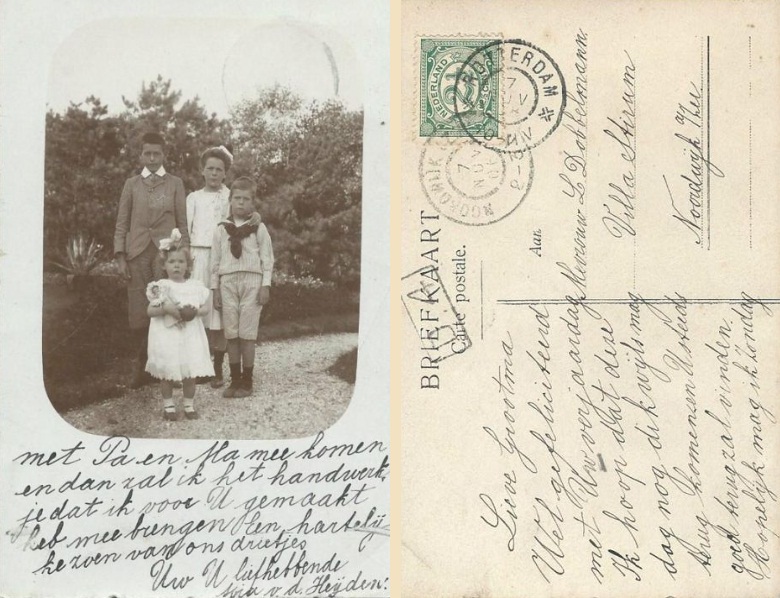 met Pa en Ma mee komen
en dan zal ik het handwerk,
je dat ik voor U gemaakt
heb mee brengen Een hartelij
ke zoen van ons drietjes
Uw U liefhebbende
v. d. Heijden.
NEDERLAND
ROTTERDAM
NOORDWIJK
BRIEFKAART
Carte postale.
Aan
Mevrouw L Dobbelmann.
Villa Stirum
Noordwijk a/ Zee
Lieve Grootma
Wel gefeliciteerd
met Uw verjaardag
Ik hoop dat deze
dag nog dikwijls mag
terug komen en U steeds
goed terug zal vinden.
Hopelijk mag ik Zondag